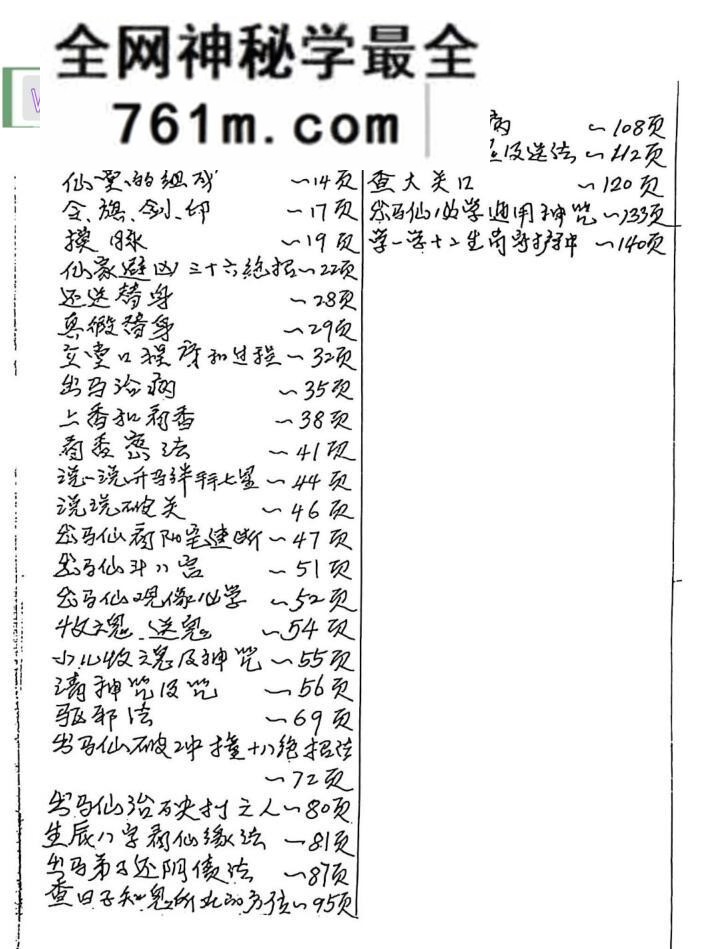 全网神秘学最全
761m.com
仙堂的组成 ~14页
令、旗、剑、印 ~17页
摸脉 ~19页
仙家避凶三十六绝招~22页
还送替身 ~28页
真假替身 ~29页
立堂口程序和过程~32页
出马治病 ~35页
上香和看香 ~38页
看香密法 ~41页
说一说开马绊手七星~44页
说说破关 ~46页
出马仙看阳宅速断~47页
出马仙斗八宫 ~51页
出马仙观像必学 ~52页
收魂、送鬼 ~54页
小儿收魂及神咒~55页
请神咒及咒 ~56页
驱邪法 ~69页
出马仙破冲撞十八绝招法
~72页
出马仙治 之人~80页
生辰八字看仙缘法 ~81页
出马弟子还阴债法 ~87页
查日子知鬼所北的方位~95页
病 ~108页
及送法~112页
查大关口 ~120页
出马仙必学通用神咒~133页
学一学十二生肖守护神 ~140页